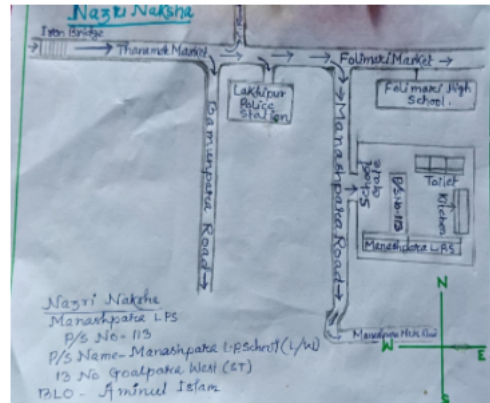 Nazri Naksha
Iron Bridge
Thanamak Market
Folimari Market
Lakhipur
Police
Station
Folimari High
School.
Damunpara Road
Manashpara Road
School
Gate
P/S No-113
Toilet
Kitchen
Manashpara L.P.S
N
W
E
S
Nazri Naksha
Manashpara LPS
P/S No-113
P/S Name- Manashpara L.P School (L/W)
13 No Goalpara West (ST)
BLO- Aminul Islam